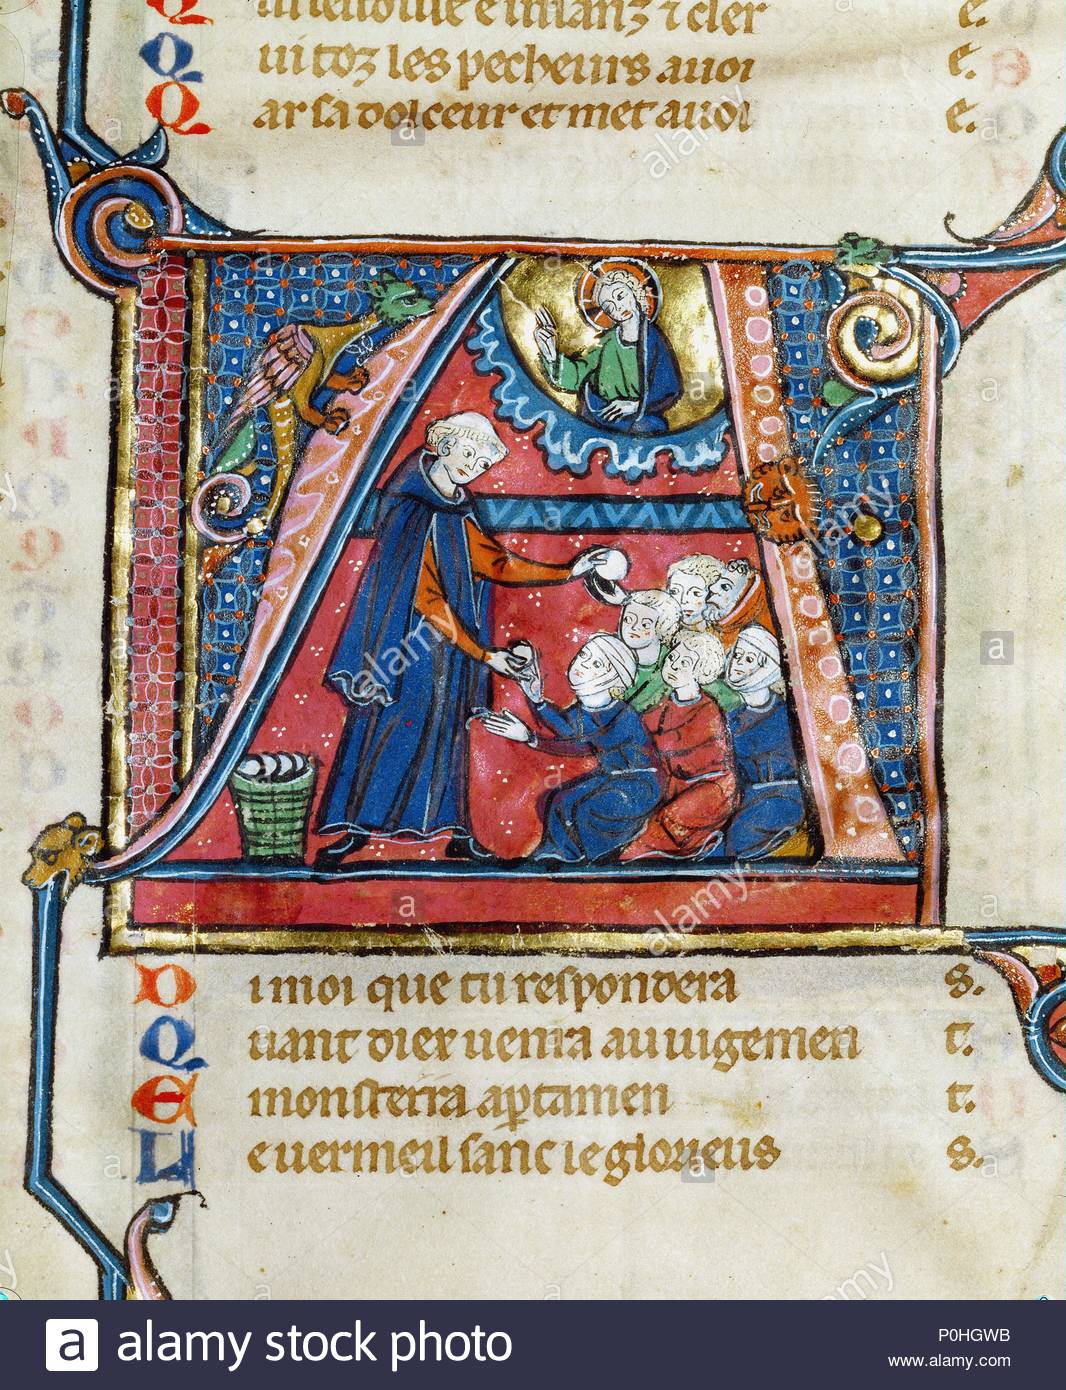 Q ui toz les pecheurs avoi e.
Q ar sa dolceur et met avoi e.
D i moi que tu respondera s.
Q uant diex venra au iugemen t.
E monsterra aptamen t.
L e vermeil sanc le glorieus s.
alamy stock photo
P0HGWB
www.alamy.com